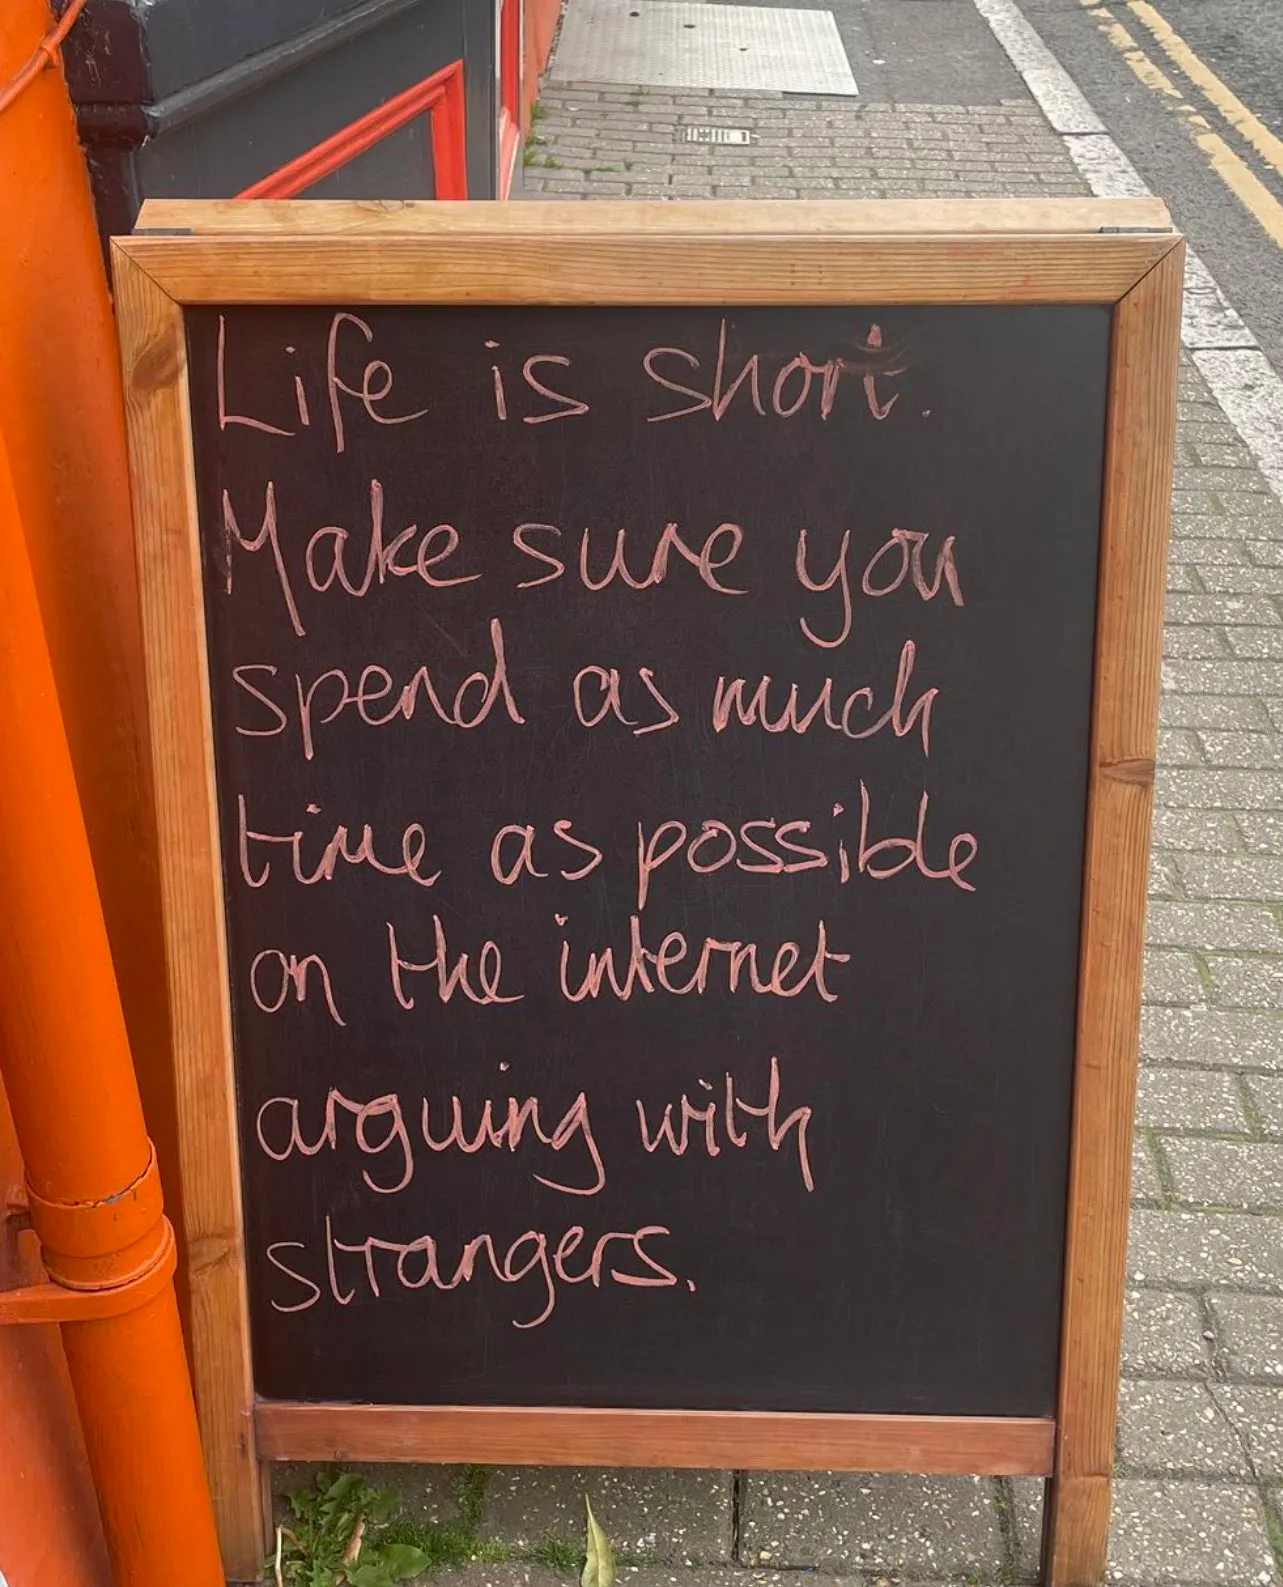 Life is short.
Make sure you
spend as much
time as possible
on the internet
arguing with
strangers.